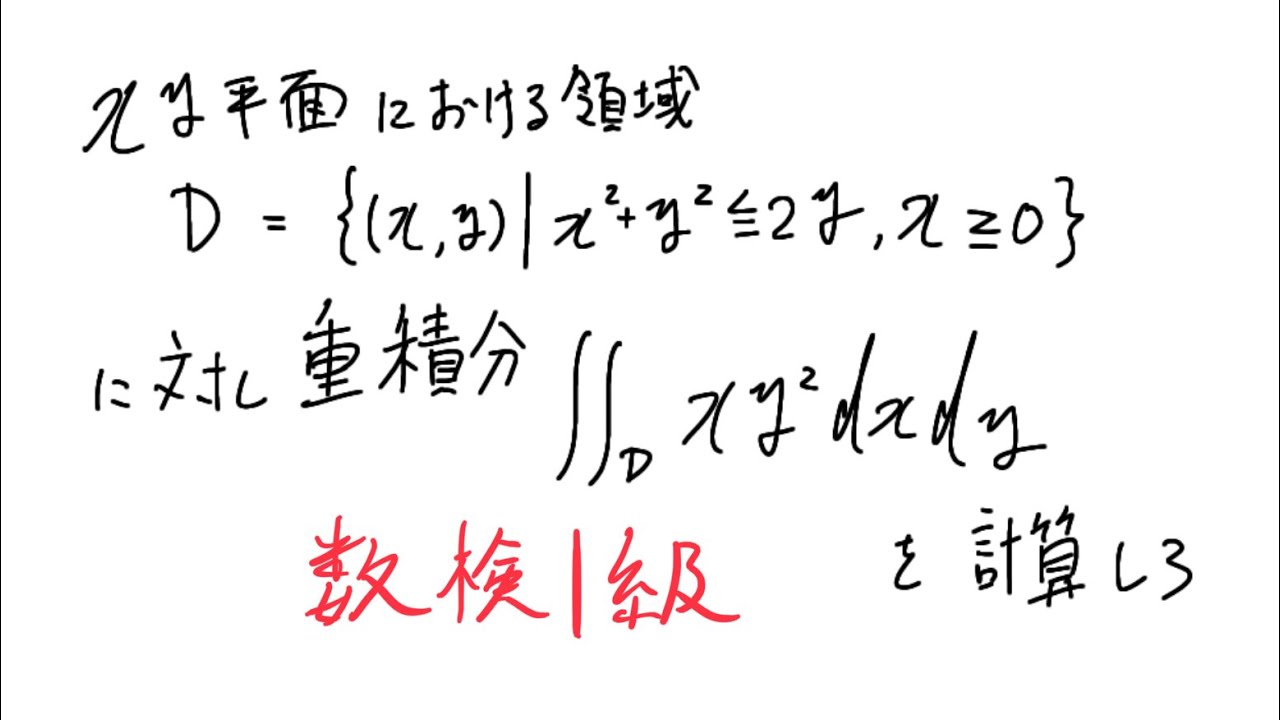 xy平面における領域
D = {(x,y)|x²+y²≦2y,x≧0}
に対し重積分∬_D xy²dxdy
を計算しろ
数検1級